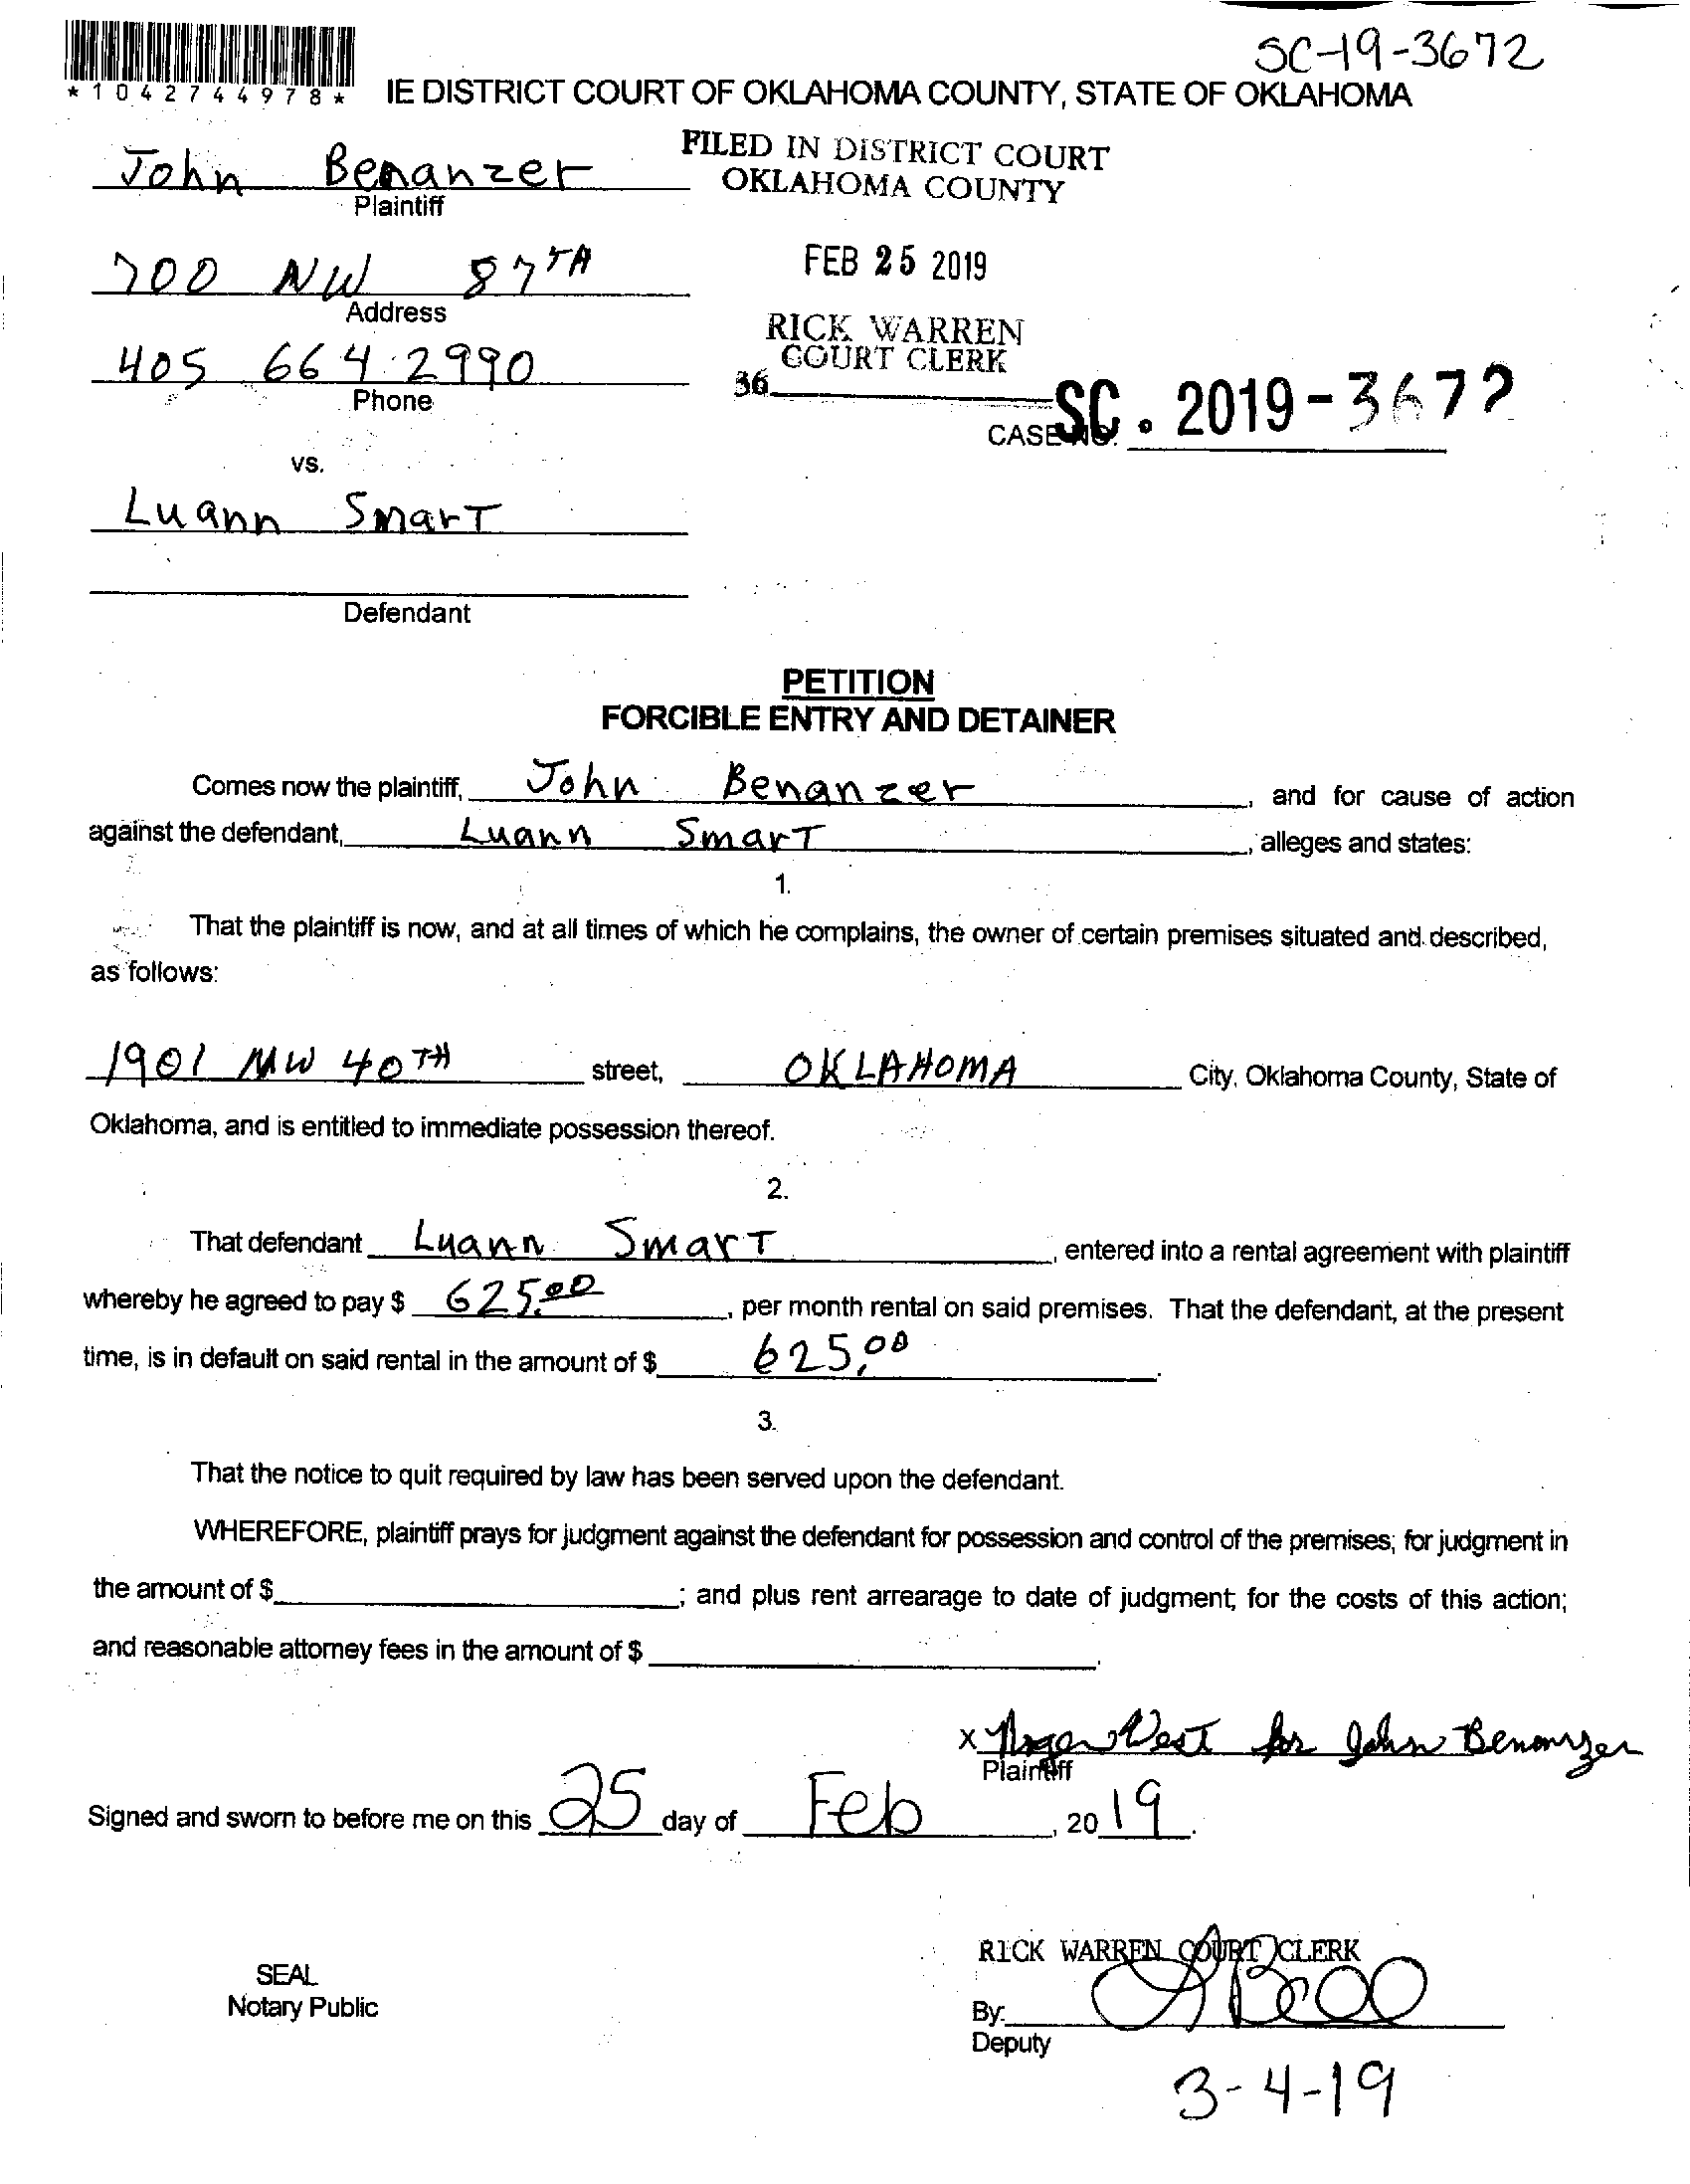 SC-19-3672
*1042744978*
IE DISTRICT COURT OF OKLAHOMA COUNTY, STATE OF OKLAHOMA
FILED IN DISTRICT COURT
OKLAHOMA COUNTY
John Benanzer
Plaintiff
FEB 25 2019
700 NW 87TH
Address
RICK WARREN
COURT CLERK
405 664-2990
Phone
36
SC. 2019-3672
CASE NO.
vs.
Luann Smart
Defendant
PETITION
FORCIBLE ENTRY AND DETAINER
Comes now the plaintiff, John Benanzer, and for cause of action
against the defendant, Luann Smart, alleges and states:
1.
That the plaintiff is now, and at all times of which he complains, the owner of certain premises situated and described,
as follows:
1901 NW 40TH street, OKLAHOMA City, Oklahoma County, State of
Oklahoma, and is entitled to immediate possession thereof.
2.
That defendant Luann Smart, entered into a rental agreement with plaintiff
whereby he agreed to pay $ 625.00, per month rental on said premises. That the defendant, at the present
time, is in default on said rental in the amount of $ 625.00.
3.
That the notice to quit required by law has been served upon the defendant.
WHEREFORE, plaintiff prays for judgment against the defendant for possession and control of the premises; for judgment in
the amount of $ ; and plus rent arrearage to date of judgment; for the costs of this action;
and reasonable attorney fees in the amount of $ .
x West for John Benanzer
Plaintiff
Signed and sworn to before me on this 25 day of Feb, 2019.
RICK WARREN COURT CLERK
SEAL
Notary Public
By:
Deputy
3-4-19